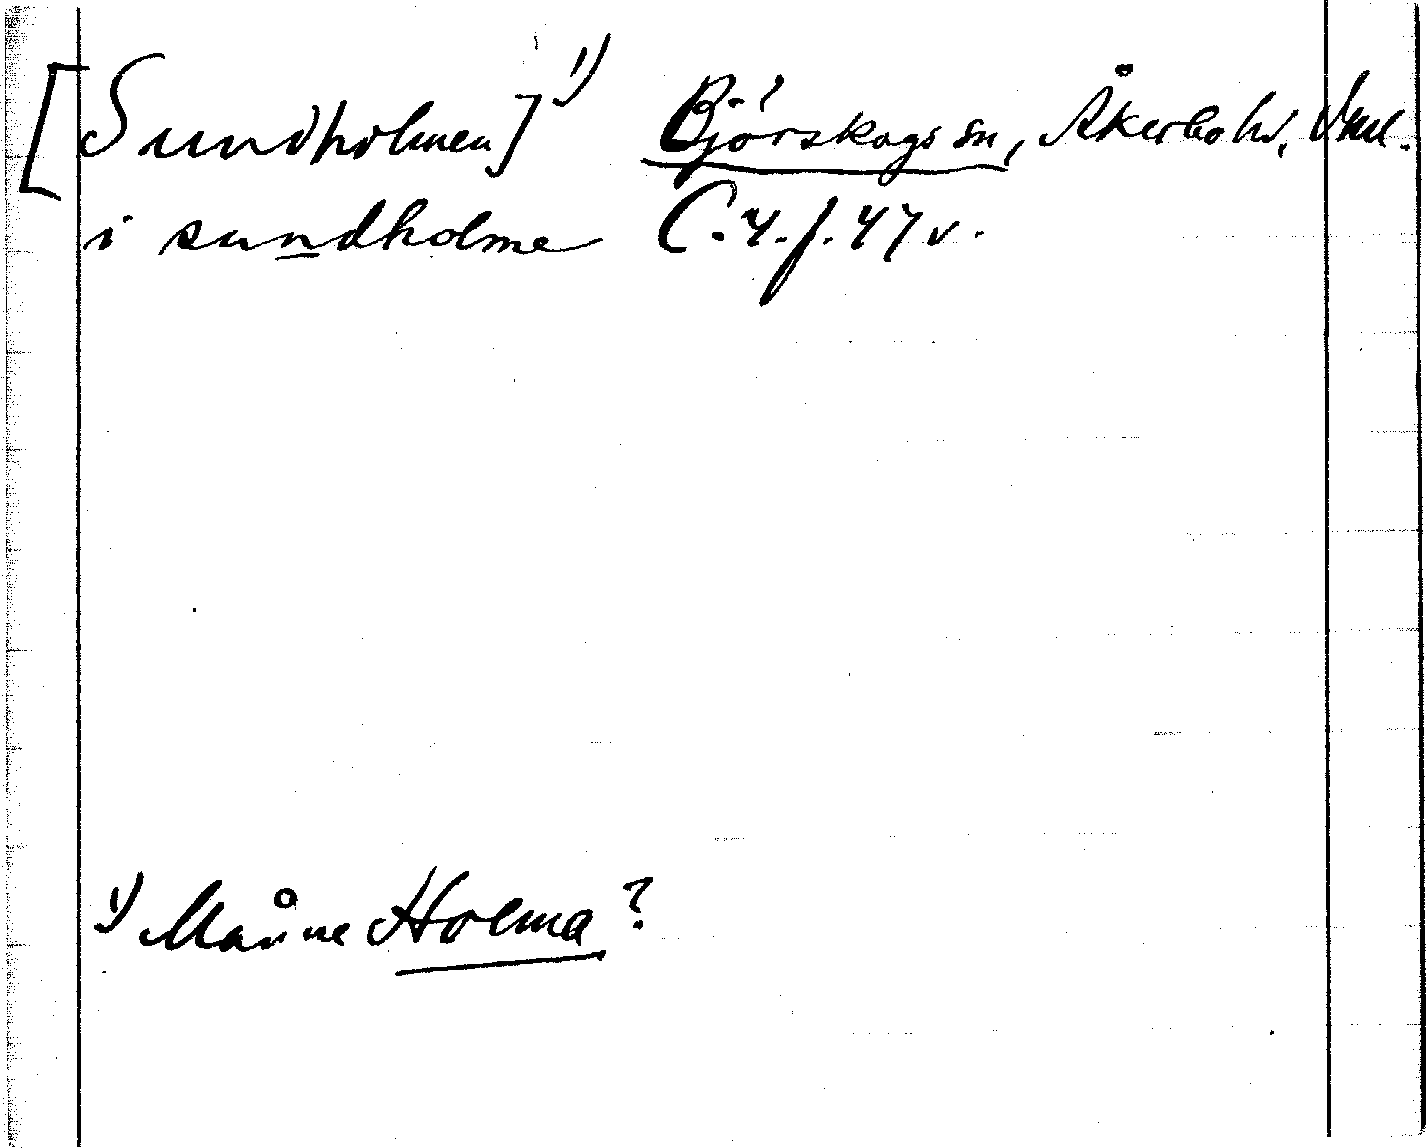 [Sundholmen]¹⁾ Björskogs sn, Åkerbo hd, Vml.
i sundholme C.4.f.47v.
¹⁾ Månne Holma?